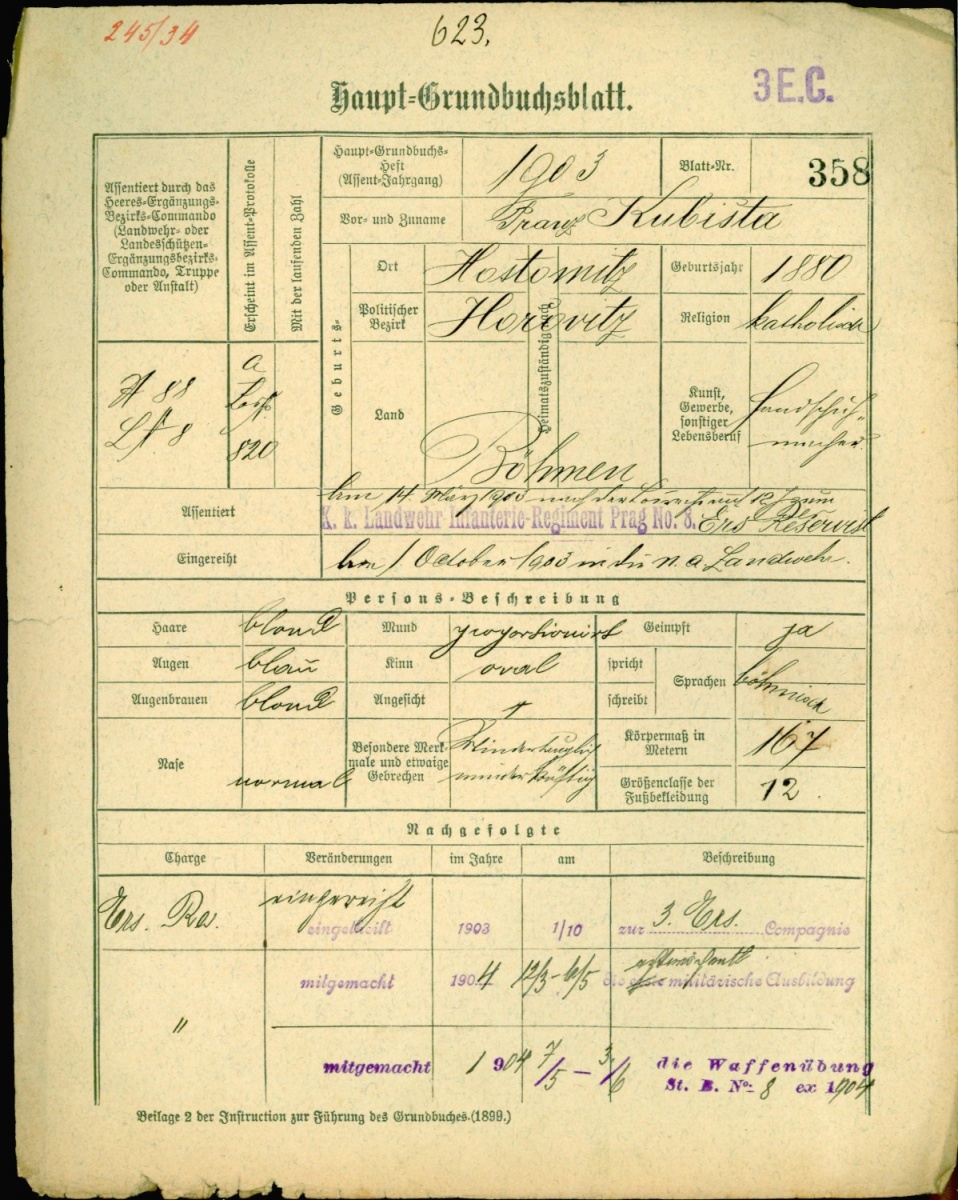 245/34
623.
3E.C.
Haupt-Grundbuchsblatt.
Assentiert durch das
Heeres-Ergänzungs-
Bezirks-Commando
(Landwehr- oder
Landesschützen-
Ergänzungsbezirks-
Commando, Truppe
oder Anstalt)
Erscheint im Assent-Protokolle
Mit der laufenden Zahl
Haupt-Grundbuchs-
Heft
(Assent-Jahrgang)
1903
Blatt-Nr.
358
Vor- und Zuname
Franz Kubišta
Geburts-
Ort
Hostomitz
Geburtsjahr
1880
Politischer
Bezirk
Horovitz
Heimatszuständig nach
Religion
katholisch
88
8
a
820
Land
Böhmen
Kunst,
Gewerbe,
sonstiger
Lebensberuf
Handschuh-
macher
Assentiert
Am 14. März 1903 auf 12 J zum
K. k. Landwehr Infanterie-Regiment Prag No. 8. Ers Reservist
Eingereiht
Am 1 October 1903 in die n. a. Landwehr.
Persons-Beschreibung
Haare
blond
Mund
proportionirt
Geimpft
ja
Augen
blau
Kinn
oval
spricht
schreibt
Sprachen
böhmisch
Augenbrauen
blond
Angesicht
"
Nase
normal
Besondere Merk-
male und etwaige
Gebrechen
Mindertauglich
minder kräftig
Körpermaß in
Metern
167
Größenclasse der
Fußbekleidung
12.
Nachgefolgte
Charge
Veränderungen
im Jahre
am
Beschreibung
Ers. Res.
eingereiht
eingetheilt
1903
1/10
zur 3. Ers. Compagnie
mitgemacht
1904
12/3-6/5
die militärische Ausbildung
"
mitgemacht
1904
7/5 - 3/6
die Waffenübung
St. B. No: 8 ex 1904
Beilage 2 der Instruction zur Führung des Grundbuches.(1899.)